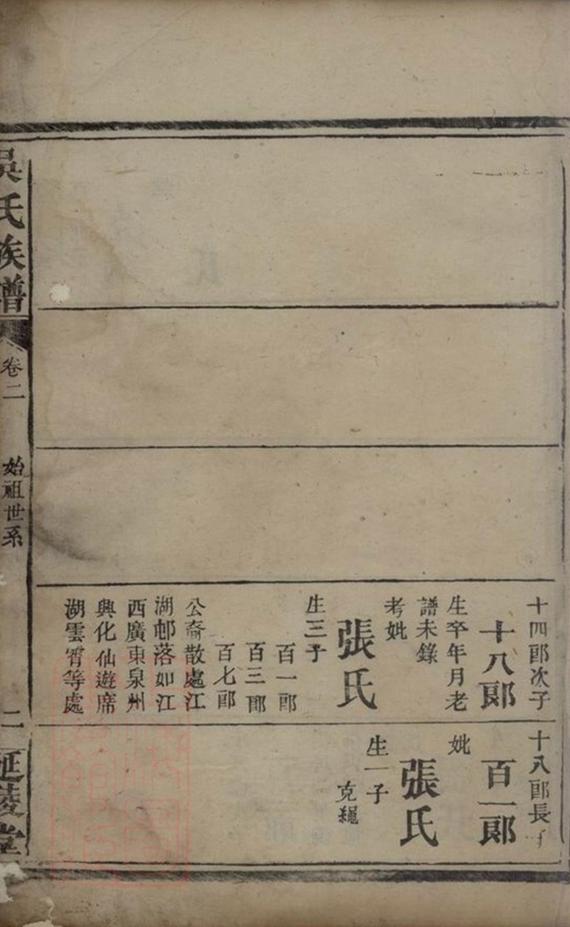 十四郎次子
十八郎
生卒年月老
譜未錄
考妣
張氏
生三子
百一郎
百三郎
百七郎
公裔散處江
湖邨落如江
西廣東泉州
興化仙遊席
湖雲霄等處
十八郎長子
百一郎
妣
張氏
生一子
克繩
吳氏族譜
卷二
始祖世系
二
延陵堂